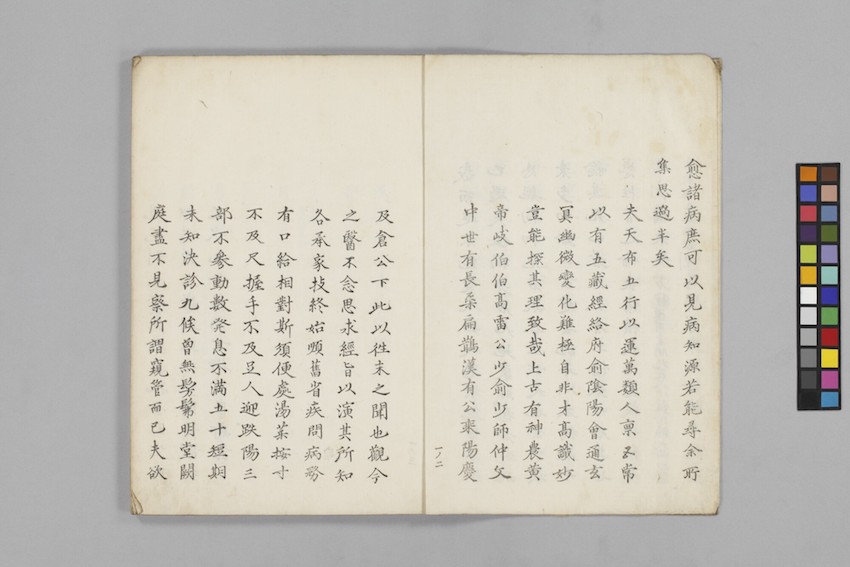 愈諸病庶可以見病知源若能尋余所
集思過半矣
夫天布五行以運萬類人禀五常
以有五藏經絡府俞陰陽會通玄
冥幽微變化難極自非才高識妙
豈能探其理致哉上古有神農黄
帝岐伯伯高雷公少俞少師仲文
中世有長桑扁鵲漢有公乘陽慶
一ノ二
及倉公下此以往未之聞也觀今
之醫不念思求經旨以演其所知
各承家技終始順舊省疾問病務
有口給相對斯須便處湯藥按寸
不及尺握手不及足人迎趺陽三
部不參動數発息不滿五十短期
未知決診九候曽無髣髴明堂闕
庭盡不見察所謂窺管而已夫欲